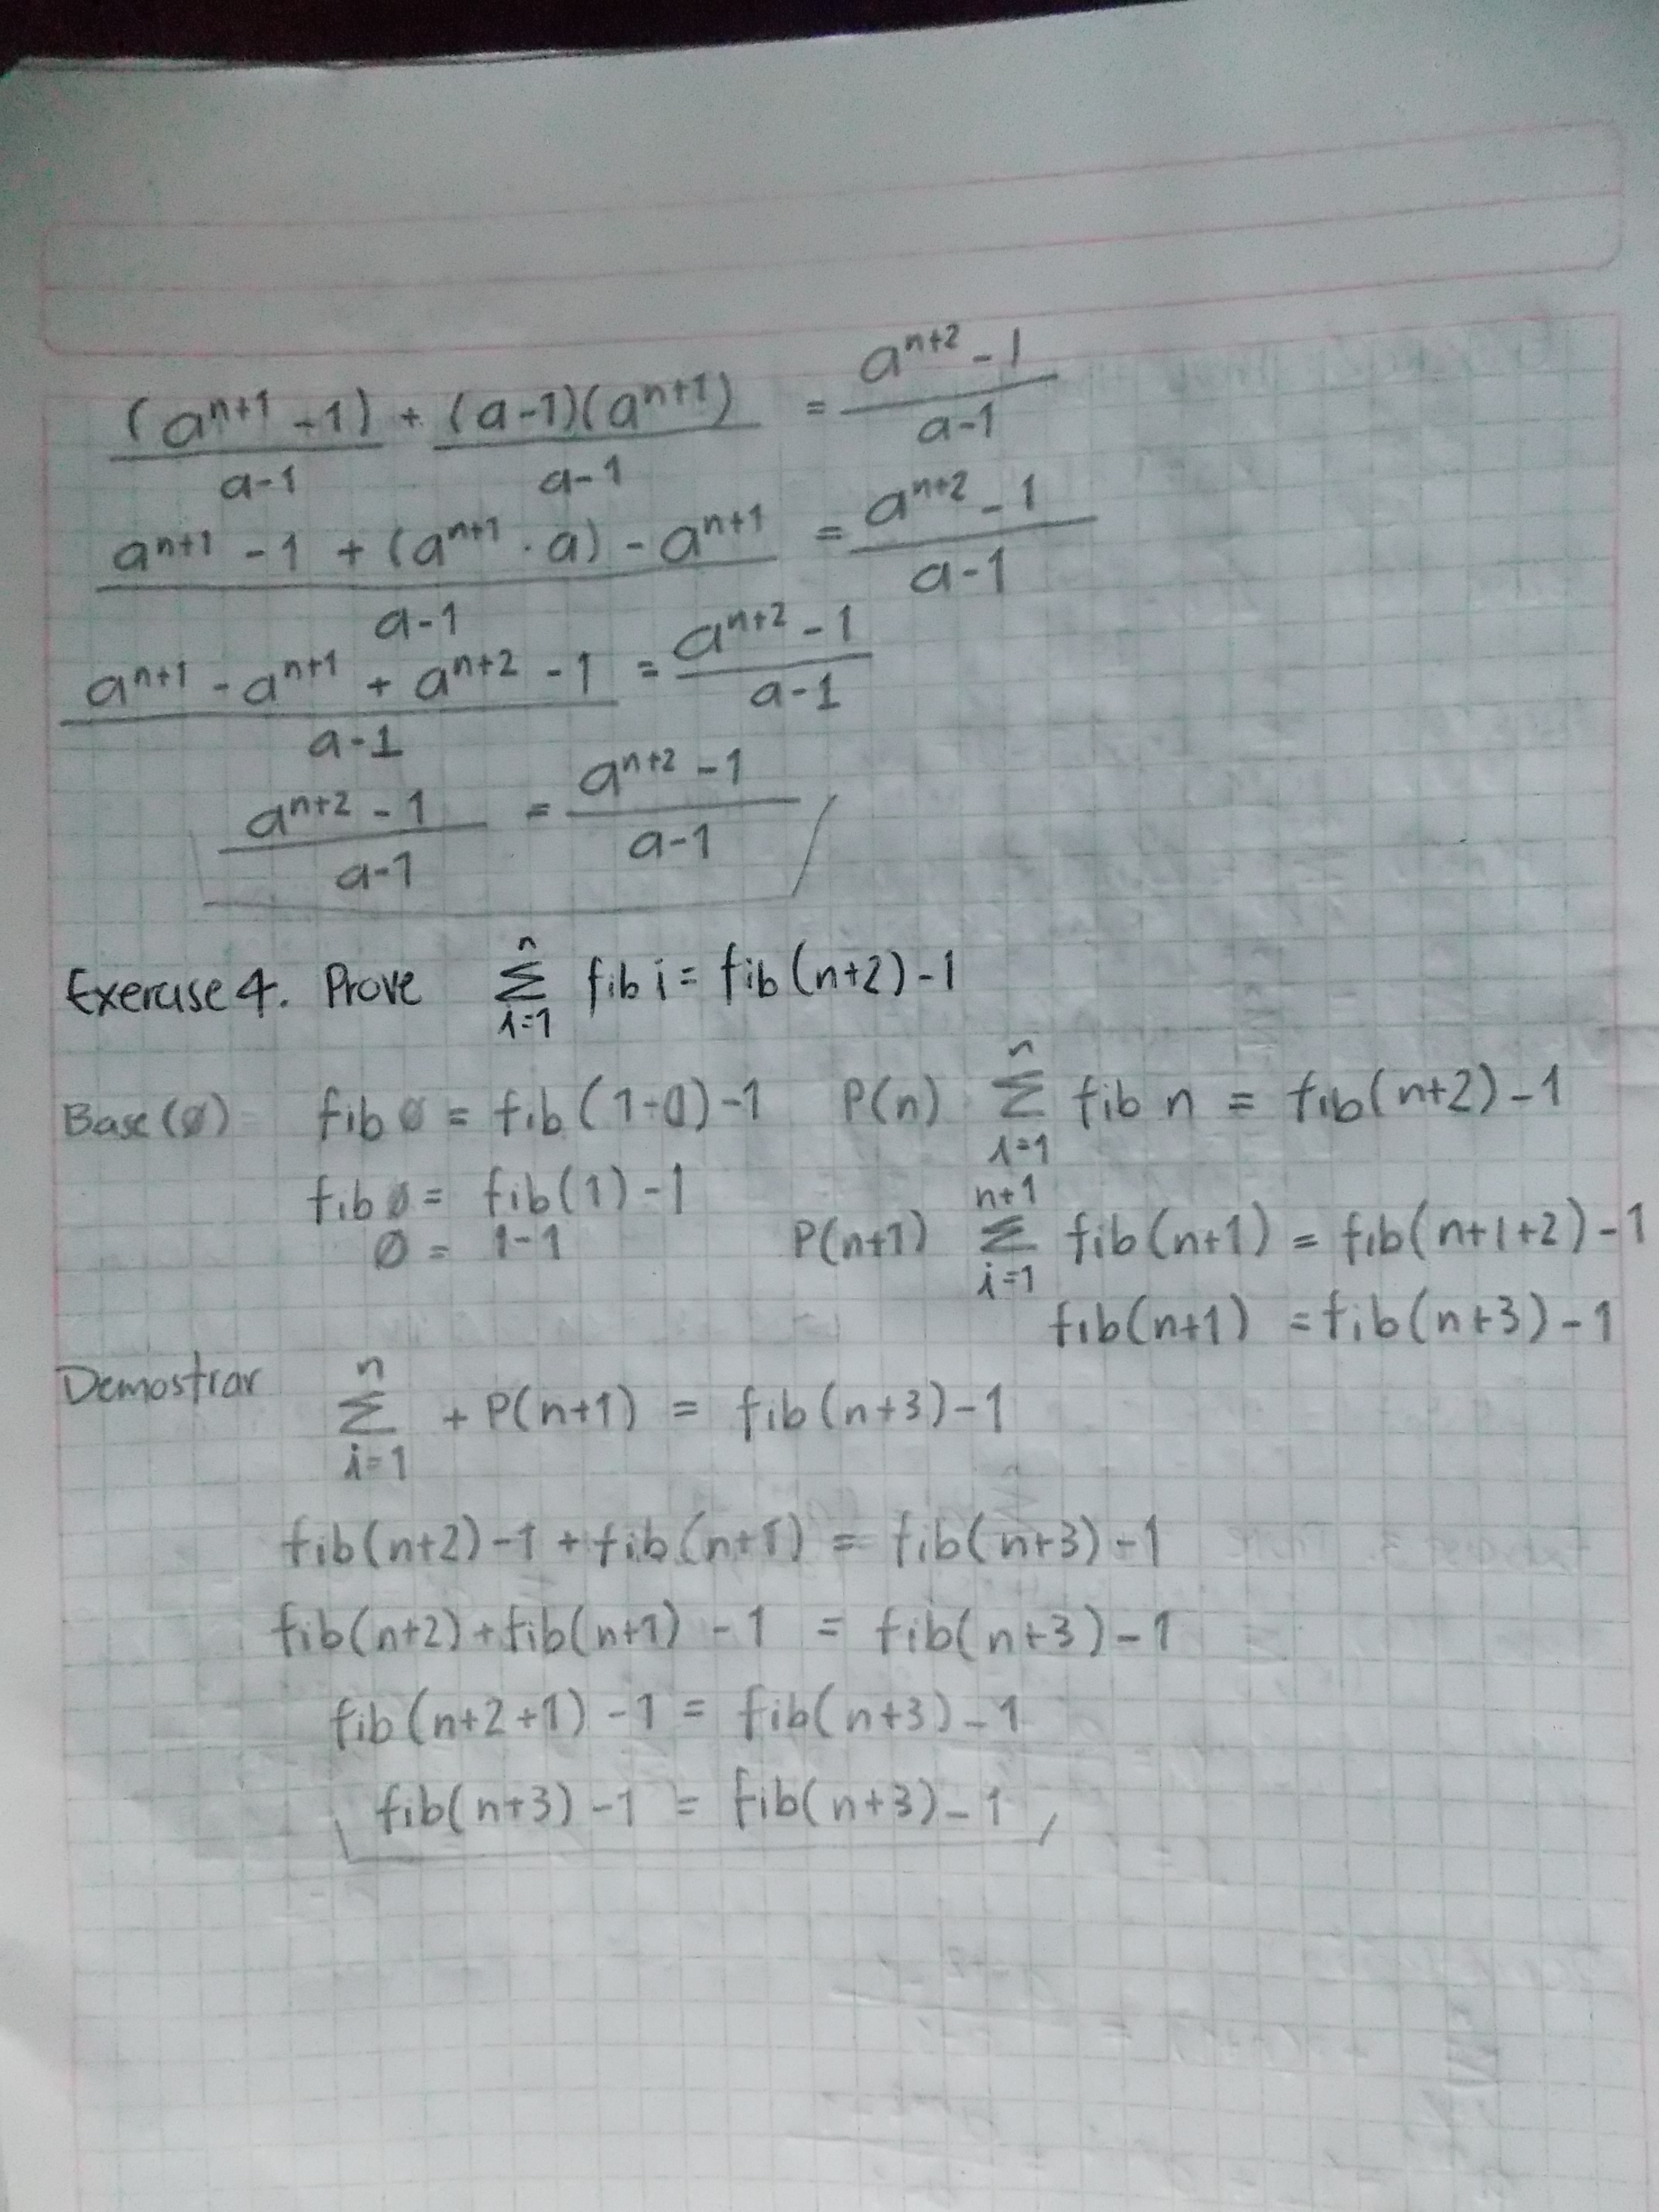 (a^{n+1} -1)/(a-1) + (a-1)(a^{n+1})/(a-1) = (a^{n+2} -1)/(a-1)
(a^{n+1} -1 + (a^{n+1} · a) - a^{n+1})/(a-1) = (a^{n+2} -1)/(a-1)
(a^{n+1} - a^{n+1} + a^{n+2} -1)/(a-1) = (a^{n+2} -1)/(a-1)
(a^{n+2} -1)/(a-1) = (a^{n+2} -1)/(a-1)
Exercise 4. Prove ∑_{i=1}^{n} fib i = fib(n+2)-1
Base(∅) fib ∅ = fib( )-1 P(n) ∑_{i=1}^{n} fib n = fib(n+2)-1
fib ∅ = fib(1)-1
∅ = 1-1 P(n+1) ∑_{i=1}^{n+1} fib(n+1) = fib(n+1+2)-1
fib(n+1) = fib(n+3)-1
Demostrar ∑_{i=1}^{n} + P(n+1) = fib(n+3)-1
fib(n+2)-1+fib(n+1) = fib(n+3)-1
fib(n+2)+fib(n+1) -1 = fib(n+3)-1
fib(n+2+1) -1 = fib(n+3)-1
fib(n+3) -1 = fib(n+3)-1